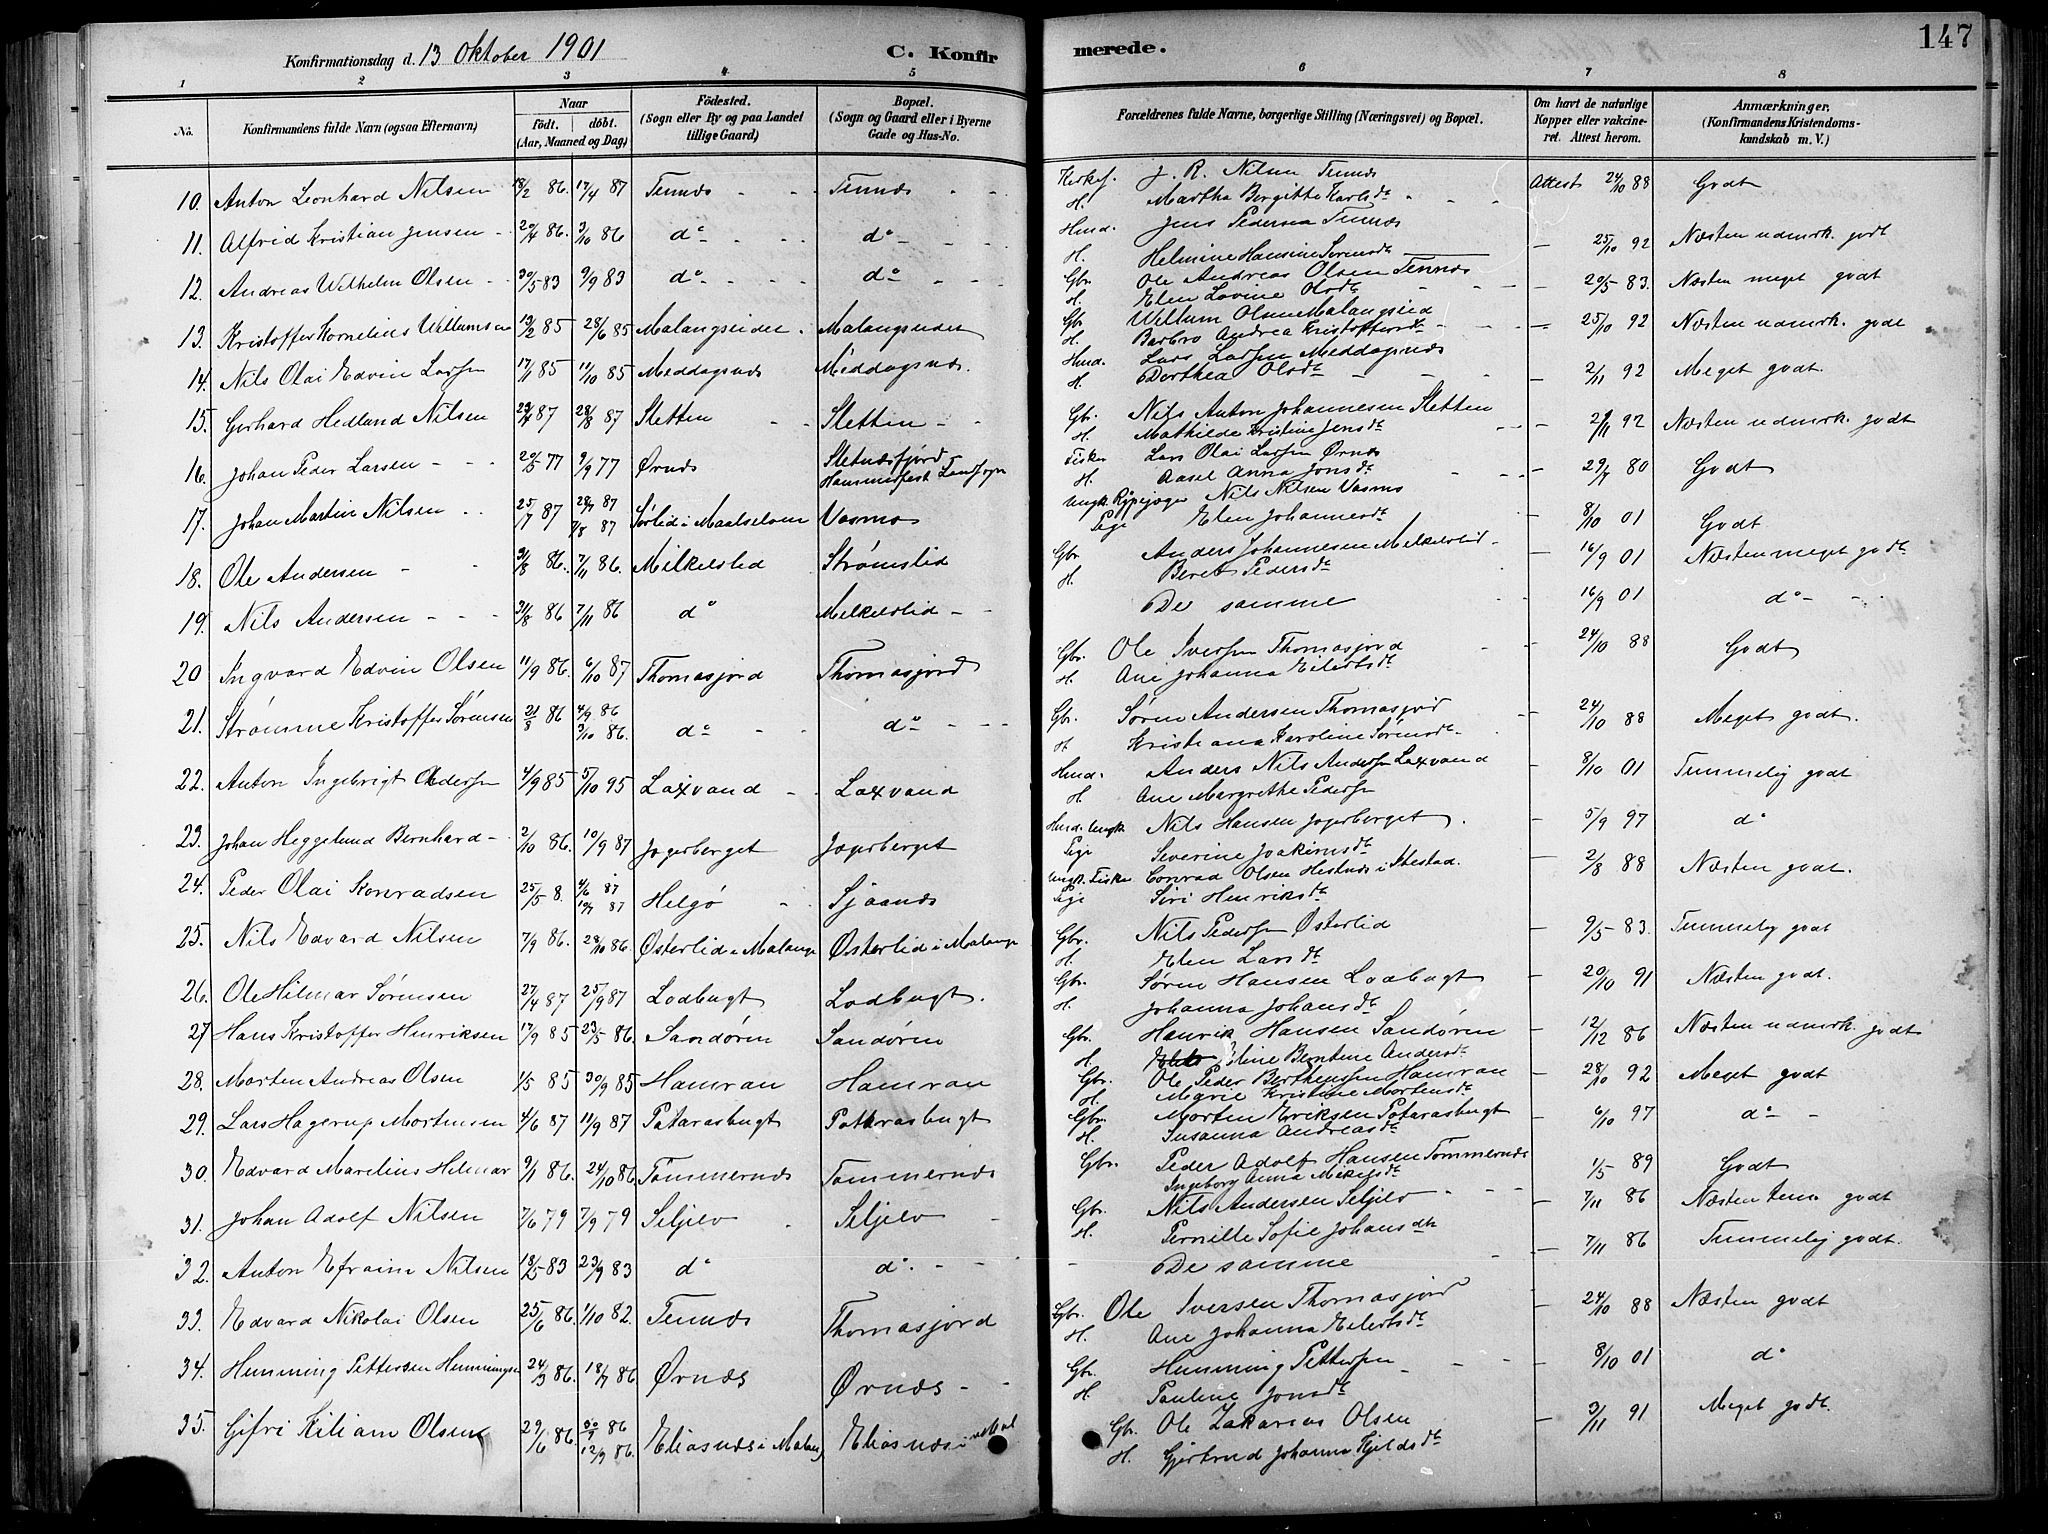 147
Konfirmationsdag d. 13 Oktober 1901 C. Konfirmerede.
1 2 3 4 5 6 7 8
No. Konfirmandens fulde Navn (ogsaa Efternavn) Naar Födt. döbt. (Aar, Maaned og Dag) Födested. (Sogn eller By og paa Landet tillige Gaard) Bopæl. (Sogn og Gaard eller i Byerne Gade og Hus-No. Forældrenes fulde Navne, borgerlige Stilling (Næringsvei) og Bopæl. Om havt de naturlige Kopper eller vakcineret. Attest herom. Anmærkninger. (Konfirmandens Kristendomskundskab m. V.)
10. Anton Leonhard Nilsen 18/2 86. 17/4 87 Tennes Tennes Kirkes. J. R. Nilsen Tennes Attest 24/10 88 Godt
H. Martha Bergitte Karlsdt
11. Alfrid Kristian Jensen 20/4 86. 3/10 86 do do Hmd. Jens Pedersen Tennes 25/10 92 Næsten udmrk. godt
H. Helmine Hansine Sørensdt
12. Andreas Wilhelm Olsen 30/5 83 9/9 83 do do Gbr. Ole Andreas Olsen Tennes 20/5 83. Næsten meget godt
H. Elen Lovine Olsdt
13. Kristoffer Kornelius Willumsen 13/2 85 28/6 85 Malangseidet Malangseidet Gbr. Willum Olsen Malangseid 25/10 92 Næsten udmrk. godt
H. Barbro Andrea Kristoffersdt
14. Nils Olai Edvin Larsen 17/1 85 11/10 85 Meddagsnes Meddagsnes. Hmd. Lars Larsen Meddagsnes 2/11 92 Meget godt.
H. Dorthea Olsdt
15. Gerhard Hedlund Nilsen 29/4 87 28/8 87 Sletten Sletten Gbr. Nils Anton Johannesen Sletten 2/11 92 Næsten udmrk. godt
H. Mathilde Kristine Jensdt
16. Johan Peder Larsen 20/5 77 9/9 77 Ørnes Sletnesfjord Hammerfest Landsogn Fisker Lars Olai Larsen Ørnes 29/7 80 Godt
H. Aasel Anna Jonsdt
17. Johan Martin Nilsen 25/7 87 28/7 87 7/8 87 Sørlid i Maalselven Vasmo Ungk. Rypejæger Nils Nilsen Vasmo 8/10 01 Godt
Pige Elen Johannesdt
18. Ole Andersen 31/8 86. 7/11 86. Milkelslid Strømslid Gbr. Anders Johannesen Melkelslid 16/9 01 Næsten meget godt
H. Beret Pedersdt
19. Nils Andersen 31/8 86 7/11 86 do Melkelslid De samme 16/9 01 do
20 Ingvard Edvin Olsen 11/9 86. 6/10 87 Thomasjord Thomasjord Gbr. Ole Iversen Thomasjord 24/10 88 Godt
H. Ane Johanna Eilertsdt
21. Strømme Kristoffer Sørensen 21/8 86 4/9 86 3/10 86. do do Gbr. Søren Andersen Thomasjord 24/10 88 Meget godt.
H Kristiana Karoline Sørensdt.
22. Anton Ingebrigt Andersen 4/9 85 5/10 95 Laxvand Laxvand Hmd. Anders Nils Andersen Laxvand 8/10 01 Temmelig godt
H. Ane Margrethe Pedersen
23. Johan Heggelund Bernhard 2/10 86. 10/9 87 Jegerberget Jegerberget Hmd. Ungk Nils Hansen Jegerberget. 5/9 97 do
Pige Severine Joakimsdt
24. Peder Olai Konradsen 25/5 8. 4/6 87 10/7 87 Helgø Sjaanes Ungk. Fisker Conrad Olsen Hestnes i Ibestad. 2/8 88 Næsten godt.
Pige Siri Henriksdt
25. Nils Edvard Nilsen 7/9 86. 28/10 86. Østerlid i Malangen Østerlid i Malangen Gbr. Nils Pedersen Østerlid 9/5 83. Temmelig godt
H. Elen Larsdt
26. Ole Hilmar Sørensen 27/4 87 25/9 87 Lodbugt Lodbugt. Gbr. Søren Hansen Lodbugt 20/10 91 Næsten godt.
H. Johanna Johansdt
27 Hans Kristoffer Henriksen 17/9 85 23/5 86. Sandøren Sandøren Gbr. Henrik Hansen Sandøren 12/12 86 Næsten udmrk. godt
H. Eline Bentine Andersdt
28. Morten Andreas Olsen 1/5 85 30/9 85 Hamran Hamran Gbr. Ole Peder Berthinssen Hamran 28/10 92 Meget godt
H. Marie Kristine Mortensdt
29. Lars Hagerup Mortensen 4/6 87 11/9 87 Patarasbugt Patarasbugt Gbr. Morten Eriksen Patarasbugt 6/10 97 do
H. Susanna Andreasdt
30. Edvard Marelius Hilmar 9/1 86. 24/10 86. Tømmernes Tømmernes Gbr. Peder Adolf Hansen Tømmernes 1/5 89 Godt
Ingeborg Anna Mikelsdt
31. Johan Adolf Nilsen 7/6 79 7/9 79 Seljelv Seljelv Gbr. Nils Andersen Seljelv 7/11 86 Næsten tem. godt
H. Pernille Sofie Johansdt
32. Anton Efraim Nilsen 18/5 83 23/9 83 do do De samme 7/11 86 Temmelig godt.
33. Edvard Nikolai Olsen 25/6 86. 1/10 82. Tennes Thomasjord Gbr. Ole Iversen Thomasjord 24/10 88 Næsten godt
H. Ane Johanna Eilertsdt
34. Henning Pettersen Henningsen 24/3 86. 18/7 86 Ørnes Ørnes Gbr. Henning Pettersen 8/10 01 do
H. Pauline Jonsdt
35. Gifri Kiliam Olsen 29/6 86. 86 12/9 86. Eliasnes i Malang Eliasnes i Gbr. Ole Zakarias Olsen 3/11 91 Meget godt.
H. Gjertrud Johanna Kjeldsdt